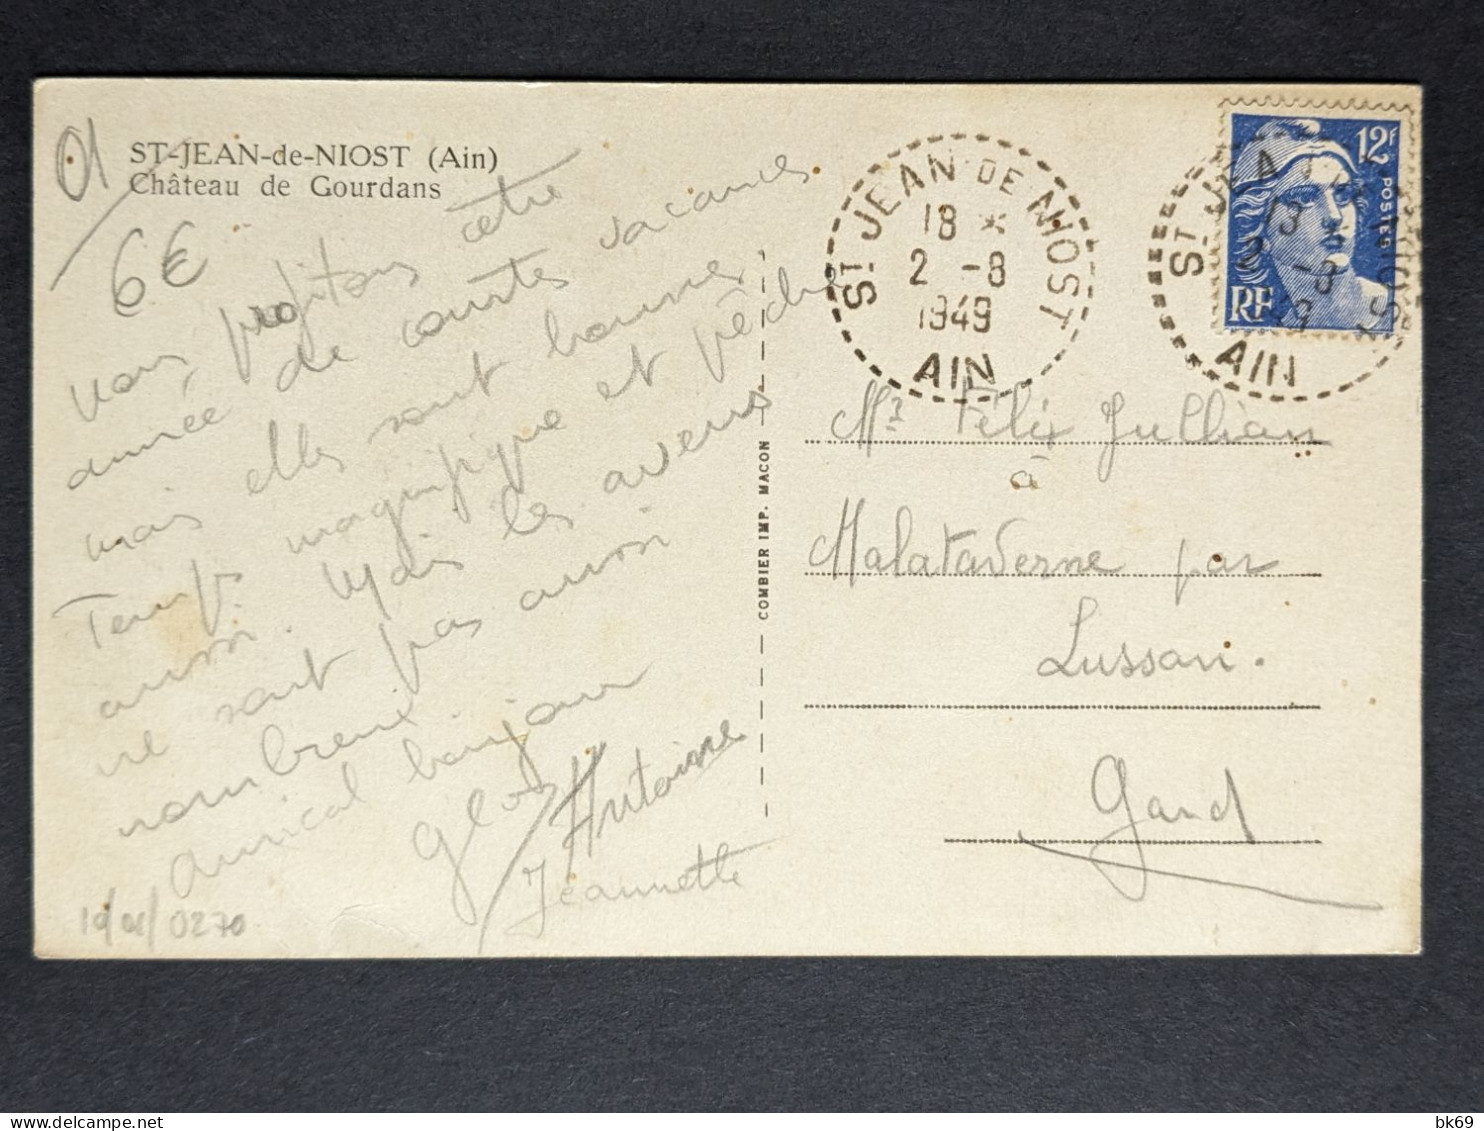 01
ST-JEAN-de-NIOST (Ain)
Château de Gourdans
6€
nous profitons cette
année de courtes vacances
mais elles sont bonnes
Temps magnifique et pêche
aussi. Mais les avens
ne sont pas aussi
nombreux
amical bonjour
Antoine
Jeannette
COMBIER IMP. MACON
ST JEAN DE NIOST
18 *
2 -8
1949
AIN
ST JEAN
AIN
12F
POSTES
RF
Mr Félix Jullian
à
Malataverne par
Lussan.
Gard
bk69